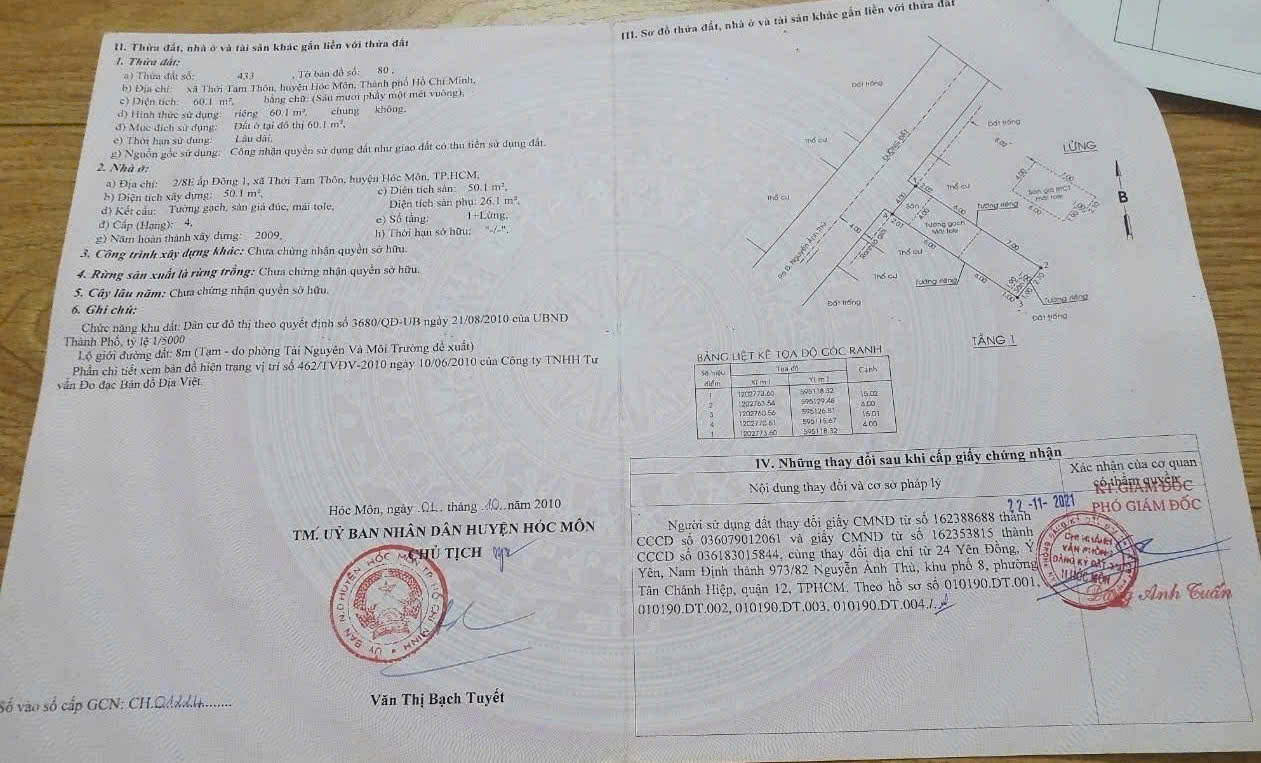 II. Thửa đất, nhà ở và tài sản khác gắn liền với thửa đất
1. Thửa đất:
a) Thửa đất số: 433 , Tờ bản đồ số: 80 ,
b) Địa chỉ: xã Thới Tam Thôn, huyện Hóc Môn, Thành phố Hồ Chí Minh,
c) Diện tích: 60.1 m², bằng chữ: (Sáu mươi phẩy một mét vuông),
d) Hình thức sử dụng: riêng 60.1 m², chung không,
đ) Mục đích sử dụng: Đất ở tại đô thị 60.1 m²,
e) Thời hạn sử dụng: Lâu dài,
g) Nguồn gốc sử dụng: Công nhận quyền sử dụng đất như giao đất có thu tiền sử dụng đất.
2. Nhà ở:
a) Địa chỉ: 2/8E ấp Đông 1, xã Thới Tam Thôn, huyện Hóc Môn, TP.HCM,
b) Diện tích xây dựng: 50.1 m², c) Diện tích sàn: 50.1 m²,
Diện tích sàn phụ: 26.1 m²,
d) Kết cấu: Tường gạch, sàn giả đúc, mái tole,
đ) Cấp (Hạng): 4, e) Số tầng: 1+Lửng,
g) Năm hoàn thành xây dựng: 2009, h) Thời hạn sở hữu: "-/-",
3. Công trình xây dựng khác: Chưa chứng nhận quyền sở hữu.
4. Rừng sản xuất là rừng trồng: Chưa chứng nhận quyền sở hữu.
5. Cây lâu năm: Chưa chứng nhận quyền sở hữu.
6. Ghi chú:
Chức năng khu đất: Dân cư đô thị theo quyết định số 3680/QĐ-UB ngày 21/08/2010 của UBND
Thành Phố, tỷ lệ 1/5000
Lộ giới đường đất: 8m (Tạm - do phòng Tài Nguyên Và Môi Trường đề xuất)
Phần chi tiết xem bản đồ hiện trạng vị trí số 462/TVĐV-2010 ngày 10/06/2010 của Công ty TNHH Tư
vấn Đo đạc Bản đồ Địa Việt.
Hóc Môn, ngày 01 tháng 10 năm 2010
TM. UỶ BAN NHÂN DÂN HUYỆN HÓC MÔN
CHỦ TỊCH
Văn Thị Bạch Tuyết
Số vào sổ cấp GCN: CH
III. Sơ đồ thửa đất, nhà ở và tài sản khác gắn liền với thửa đất
Đất trống
Thổ cư
ĐƯỜNG ĐẤT
Đất trống
LỬNG
Thổ cư
Thổ cư
Sân
tường riêng
tường gạch
Mái tole
B
Thổ cư
Thổ cư
tường riêng
tường riêng
Đất trống
Đất trống
TẦNG 1
BẢNG LIỆT KÊ TỌA ĐỘ GÓC RANH
Số hiệu điểm Tọa độ Cạnh
X( m ) Y( m )
1 1202773.60 595118.32 15.02
2 1202763.54 595129.48 4.00
3 1202760.56 595126.81 15.01
4 1202770.61 595115.67 4.00
1 1202773.60 595118.32
IV. Những thay đổi sau khi cấp giấy chứng nhận
Nội dung thay đổi và cơ sơ pháp lý
Xác nhận của cơ quan
có thẩm quyền
22 -11- 2021
KT.GIÁM ĐỐC
PHÓ GIÁM ĐỐC
Người sử dụng đất thay đổi giấy CMND từ số 162388688 thành
CCCD số 036079012061 và giấy CMND từ số 162353815 thành
CCCD số 036183015844, cùng thay đổi địa chỉ từ 24 Yên Đồng, Ý
Yên, Nam Định thành 973/82 Nguyễn Ảnh Thủ, khu phố 8, phường
Tân Chánh Hiệp, quận 12, TPHCM. Theo hồ sơ số 010190.DT.001,
010190.DT.002, 010190.DT.003, 010190.DT.004./.
CHI NHÁNH
VĂN PHÒNG
ĐĂNG KÝ ĐẤT ĐAI
H.HÓC MÔN
Anh Tuấn